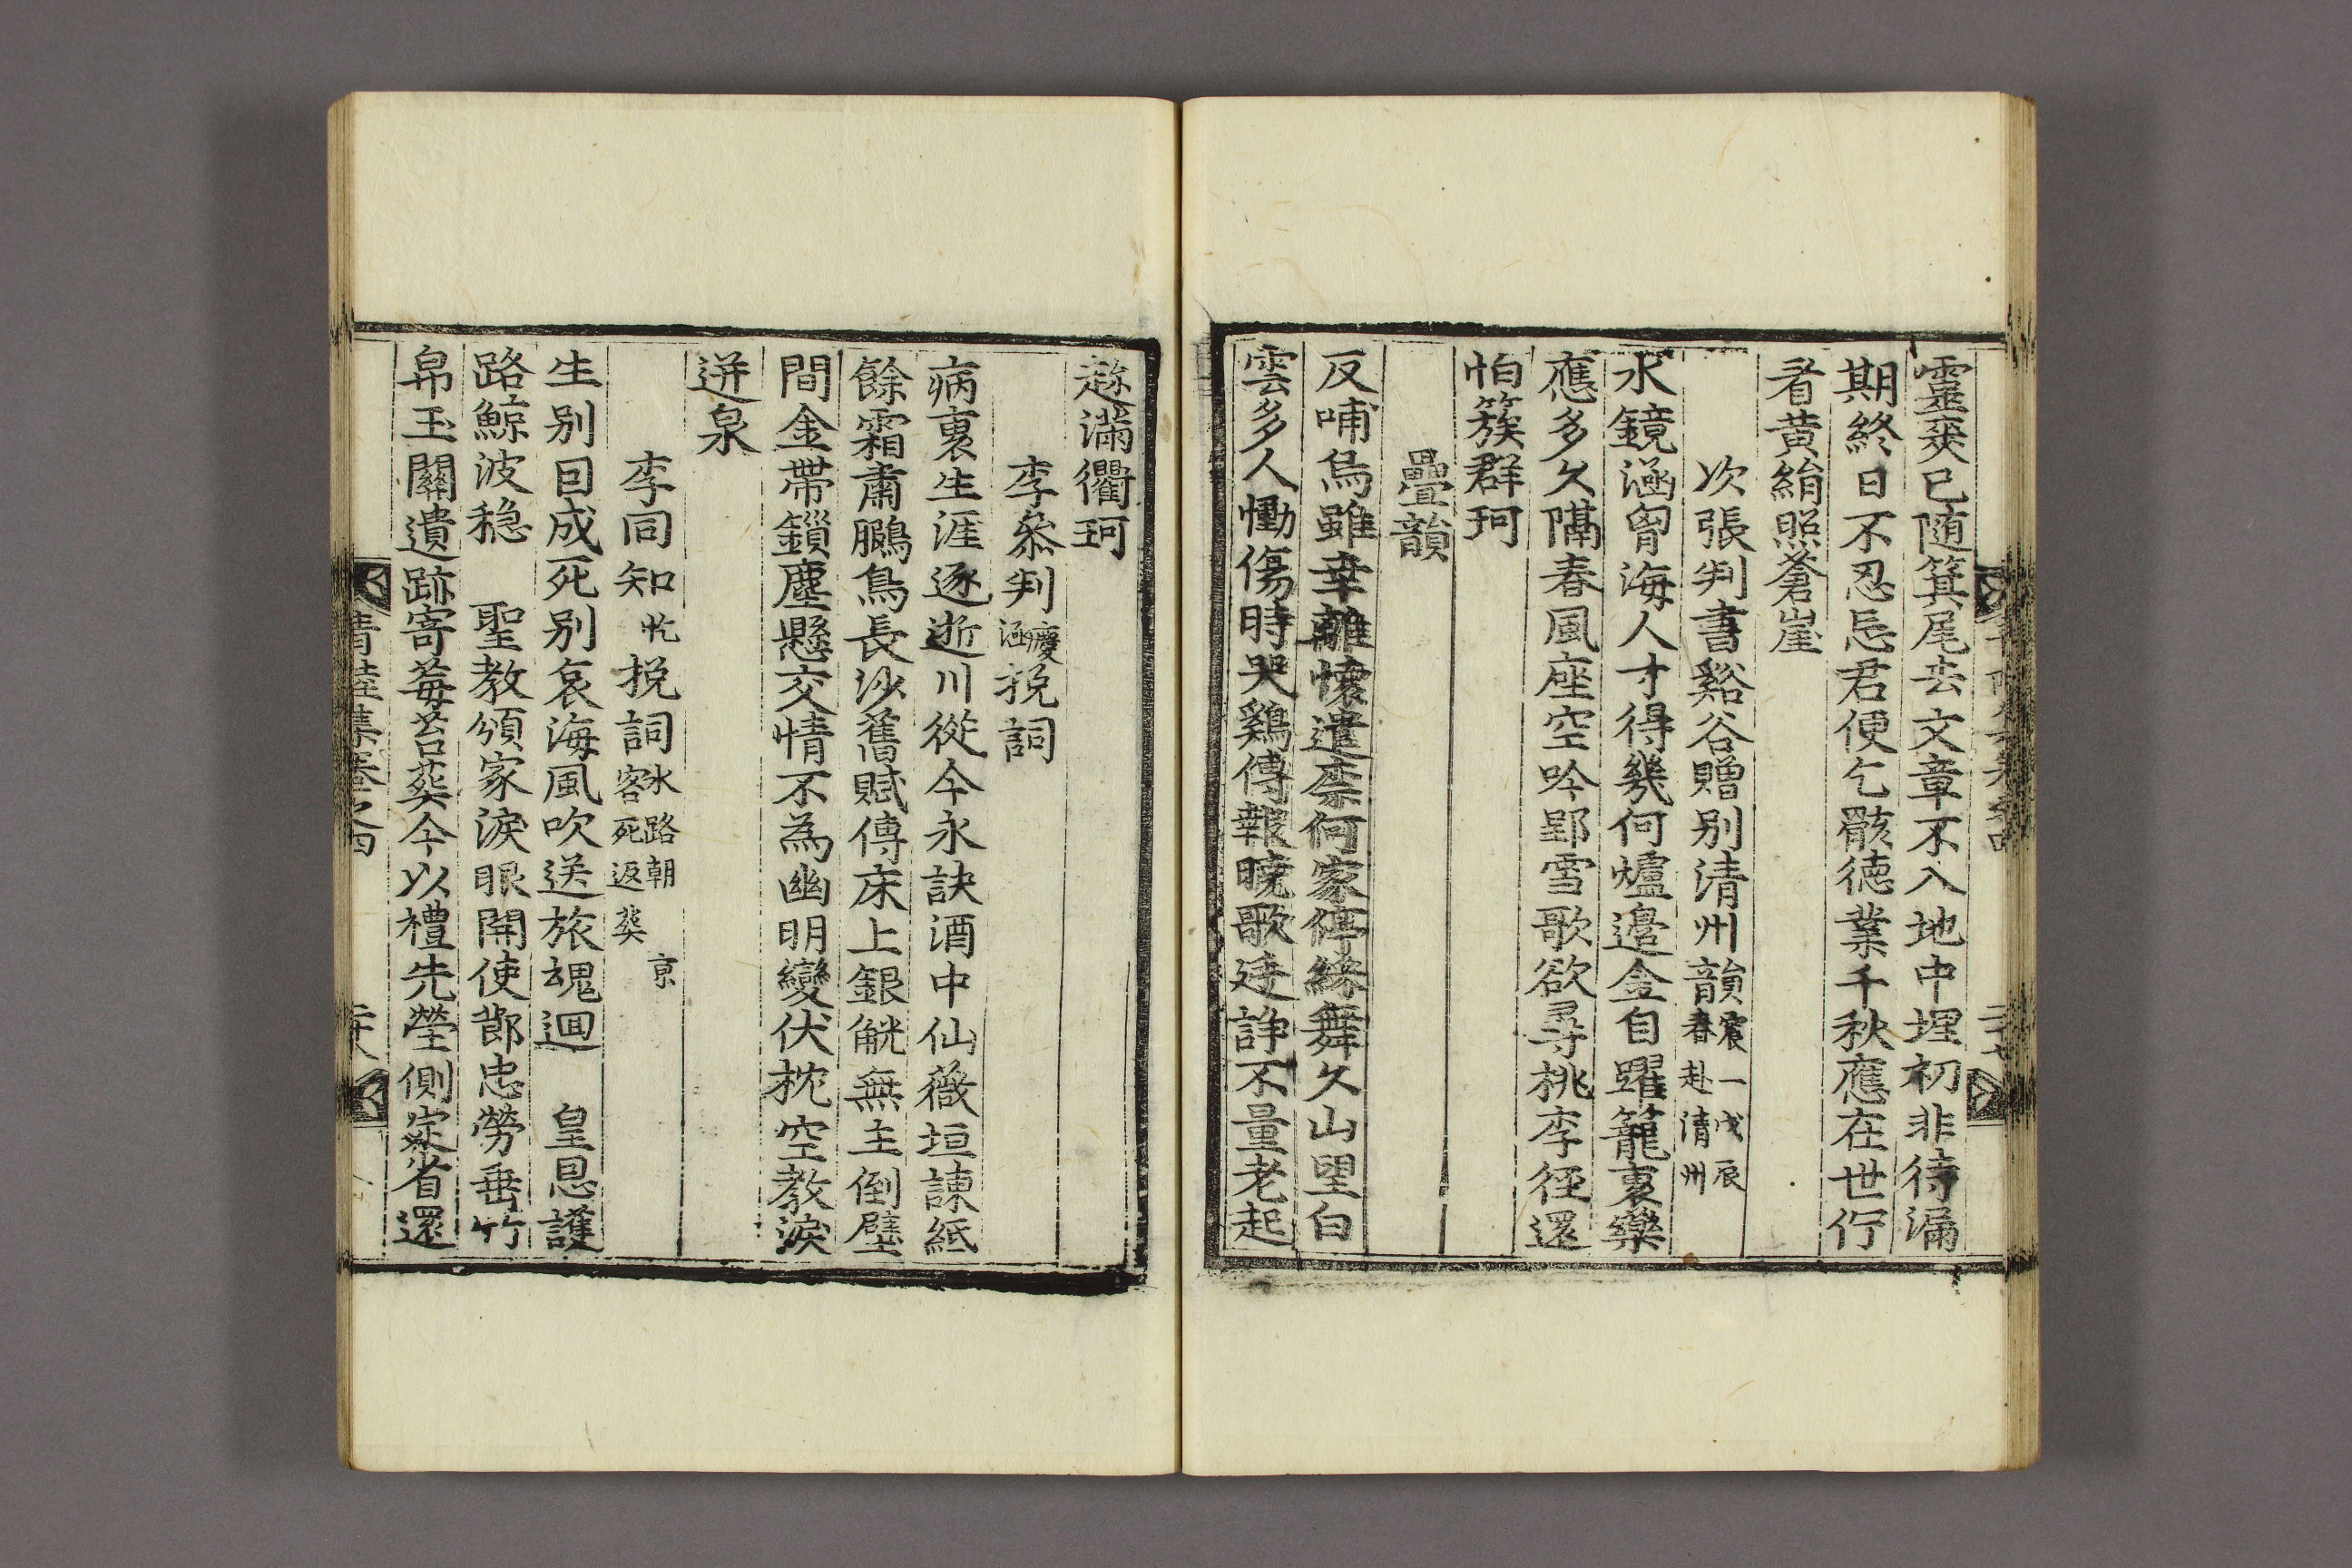 靈爽已随箕尾去文章不入地中埋初非待漏
期終日不忍忘君便乞骸徳業千秋應在世佇
看黄絹照蒼崖
次張判書谿谷贈别清州韻 震一戊辰
春赴清州
水鏡涵胷海人才得幾何爐邉金自躍籠裏藥
應多久隔春風座空吟郢雪歌欲尋桃李徑還
怕簇群珂
疊韻
反哺烏雖幸離懷遣柰何家停綵舞久山望白
雲多人慟傷時哭鷄傳報曉歌廷諍不量老起
趂滿衢珂
李叅判 慶
涵 挽詞
病裏生涯逐逝川從今永訣酒中仙薇垣諫紙
餘霜肅鵩鳥長沙舊賦傳床上銀觥無主倒壁
間金帶鎖塵懸交情不為幽明變伏枕空教淚
迸泉
李同知 忔 挽詞 水路朝京
客死返葬
生别曰成死别哀海風吹送旅魂迴 皇恩護
路鯨波穏 聖教頒家淚眼開使節忠勞垂竹
帛玉關遺跡寄莓苔葬今以禮先塋側㝎省還
清陸集卷之四 二十八